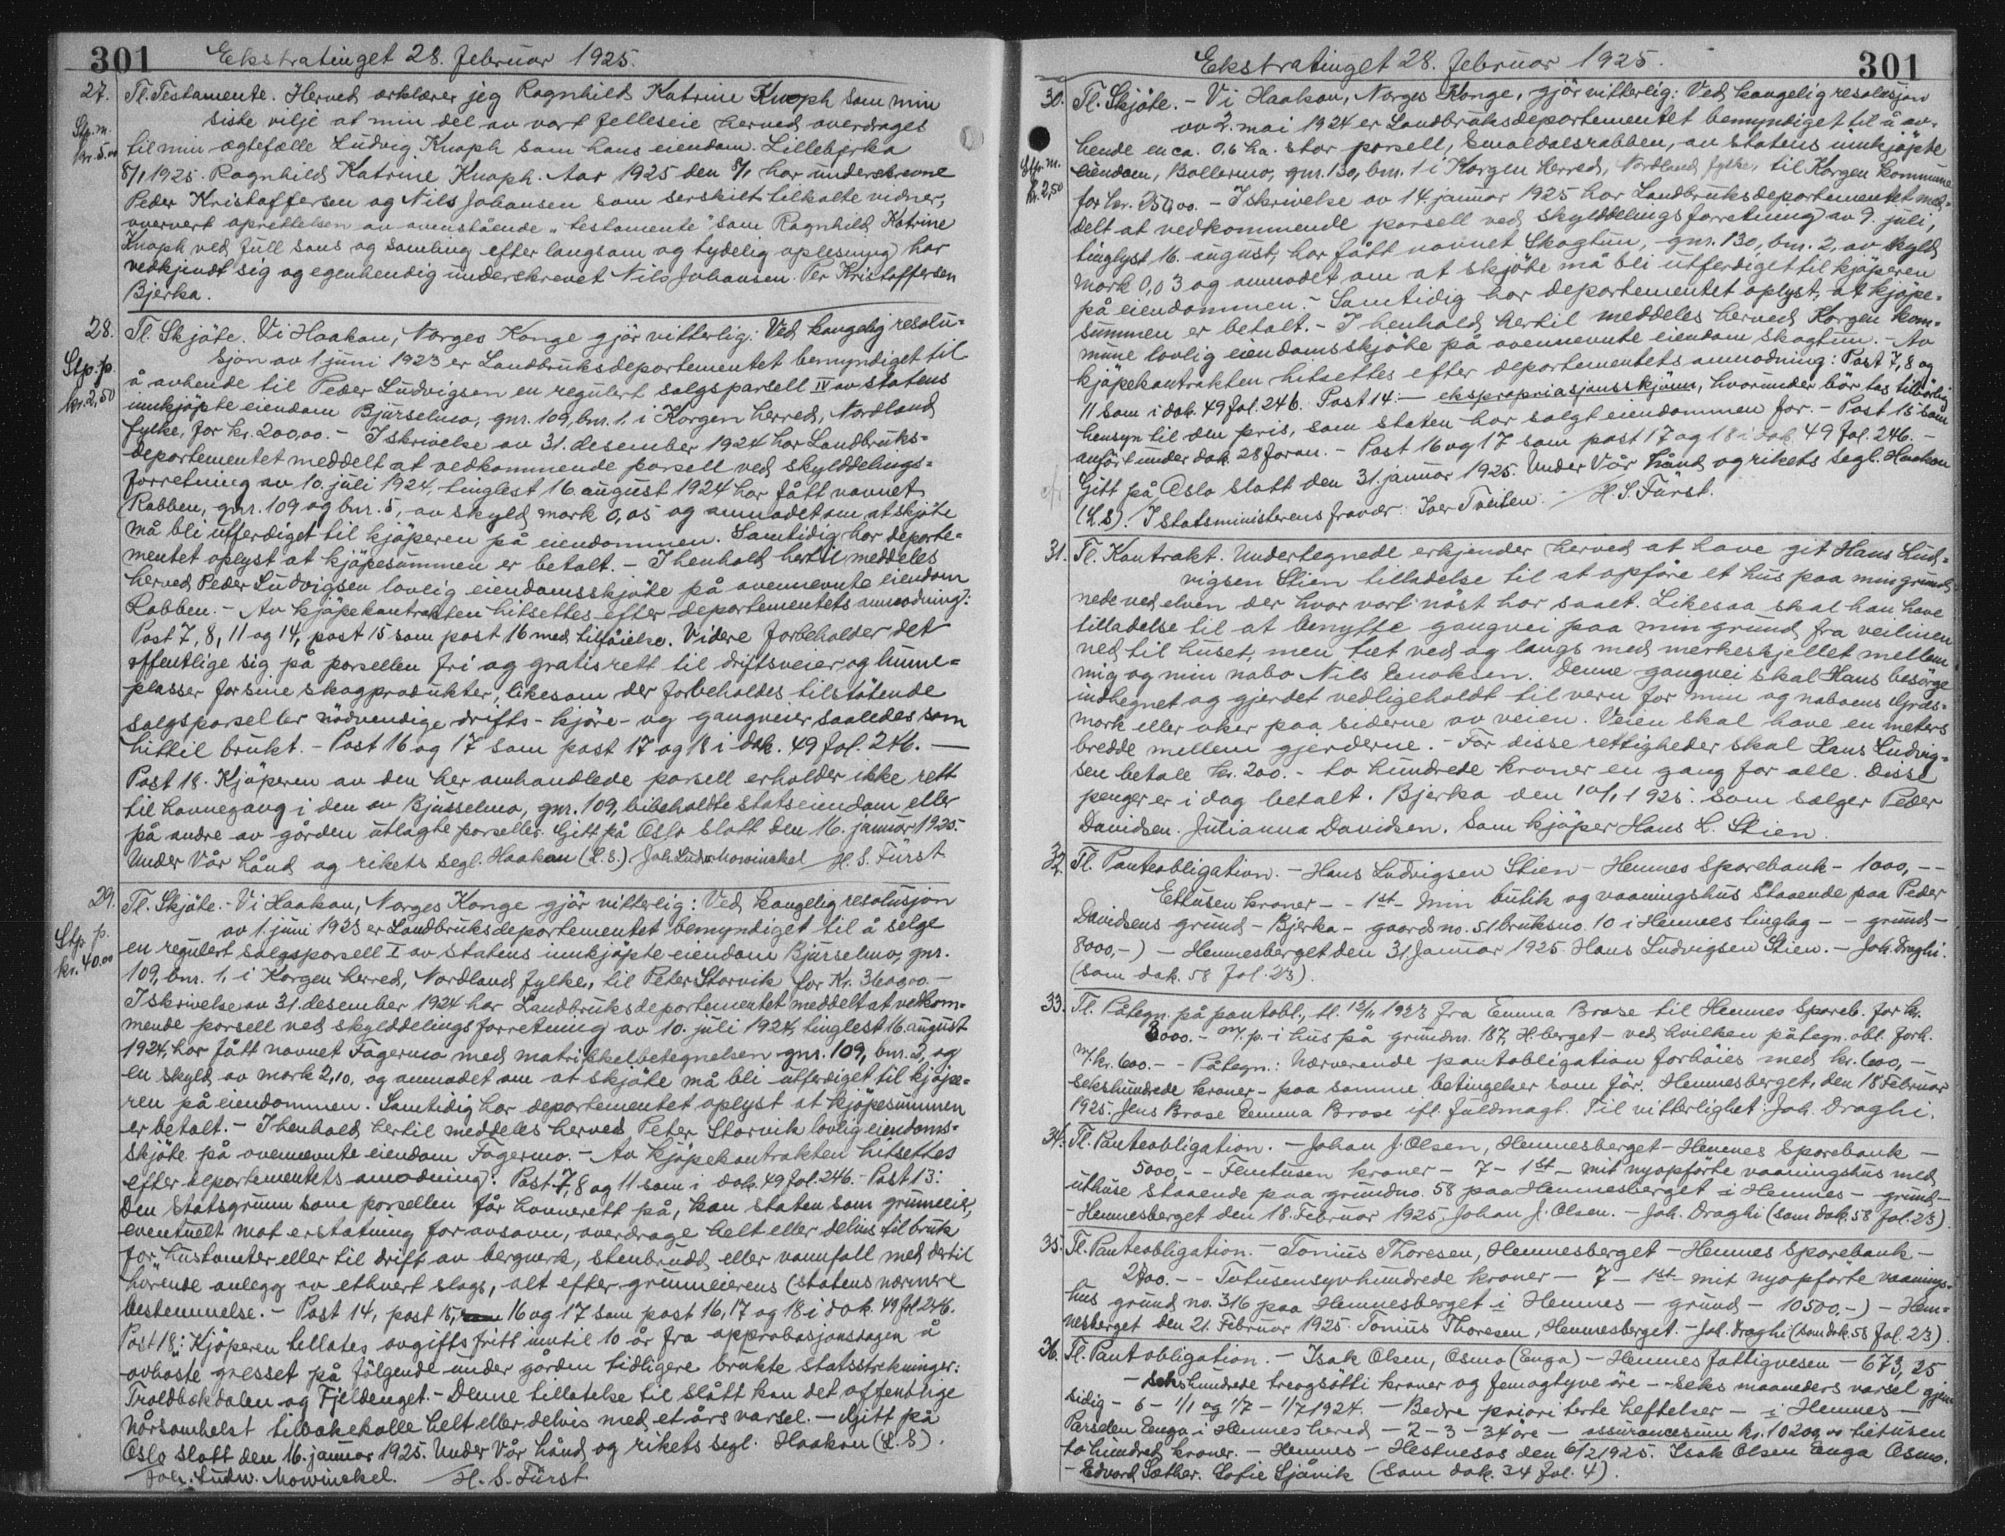 301
Ekstratinget 28. februar 1925.
27.
Tl. Testamente. Herved erklærer jeg Ragnhild Katrine Knoph som min
Stp. m.
kr. 5.00
siste vilje at min del av vort felleseie herved overdrages
til min ægtefælle Ludvig Knoph som hans eiendom. Lillebjerka
8/1 1925. Ragnhild Katrine Knoph. Aar 1925 den 8/1 har underskrevne
Peder Kristoffersen og Nils Johansen som serskilt tilkalte vidner,
oververt oprettelsen av ovenstående "testamente" som Ragnhild Katrine
Knoph ved full sans og samling efter langsom og tydelig oplesning har
vedkjendt sig og egenhendig underskrevet Nils Johansen. Per Kristoffersen
Bjerka.
28.
Tl. Skjöte. Vi Haakon, Norges Konge gjör vitterlig: Ved kongelig resolu=
Stp. p.
kr. 2,50
sjon av 1 juni 1923 er Landbruksdepartementet bemyndiget til
å avhende til Peder Ludvigsen en regulert salgsparsell IV av statens
innkjöpte eiendom Bjurselmo, gnr. 109, bnr. 1. i Korgen herred, Nordland
fylke, for kr. 200,00. - I skrivelse av 31. desember 1924 har Landbruks=
departementet meddelt at vedkommende parsell ved skylddelings=
forretning av 10. juli 1924, tinglest 16 august 1924 har fått navnet
Rabben, gnr. 109 og bnr. 5, av skyld mark 0,05 og anmodet om at skjöte
må bli utferdiget til kjöperen på eiendommen. Samtidig har departe=
mentet oplyst at kjöpesummen er betalt. - I henhold hertil meddeles
herved Peder Ludvigsen lovlig eiendomsskjöte på ovennevnte eiendom
Rabben. - Av kjöpekontrakten hitsettes efter departementets anmodning:
Post 7, 8, 11 og 14, post 15 som post 16 med tilföielse. Videre forbeholder det
offentlige sig på parsellen fri og gratis rett til driftsveier og lunne=
plasser for sine skogprodukter, likesom der forbeholdes tilstötende
salgsparseller nödvendige drifts- kjöre- og gangveier saaledes som
hittil brukt. - Post 16 og 17 som post 17 og 18 i dok. 49 fol. 246. —
Post 18. Kjöperen av den her omhandlede parsell erholder ikke rett
til havnegang i den av Bjusselmo, gnr. 109, bibeholdte statseiendom eller
på andre av gården utlagte parseller. Gitt på Oslo slott den 16. januar 1925.
Under Vår hånd og rikets segl. Haakon (L.S.) Joh. Ludw. Mowinckel / H. S. Fürst
29.
Tl. Skjöte. - Vi Haakon, Norges Konge gjör vitterlig: Ved kongelig resolusjon
Stp. p.
kr. 40.00
av 1. juni 1923 er Landbruksdepartementet bemyndiget til å selge
en regulert salgsparsell I av statens innkjöpte eiendom Bjurselmo, gnr.
109, bnr. 1, i Korgen herred, Nordland fylke, til Peter Storvik for Kr. 3600,00. -
I skrivelse av 31. desember 1924 har Landbruksdepartementet meddelt at vedkom=
mende parsell ved skylddelingsforretning av 10. juli 1924, tinglest 16. august
1924, har fått navnet Fagermo med matrikkelbetegnelsen gnr. 109, bnr. 2, og
en skyld av mark 2,10, og anmodet om at skjöte må bli utferdiget til kjöpe=
ren på eiendommen. Samtidig har departementet oplyst at kjöpesummen
er betalt. - I henhold hertil meddeles herved Peter Storvik lovlig eiendoms=
skjöte på ovennevnte eiendom Fagermo. - Av kjöpekontrakten hitsettes
efter departementets anmodning: Post 7, 8 og 11 som i dok. 49 fol. 246. - Post 13:
Den statsgrunn som parsellen får havnerett på, kan staten som grunneier,
eventuelt mot erstatning for avsavn, overdrage helt eller delvis til bruk
for hustomter eller til drift av bergverk, stenbrudd eller vannfall med dertil
hörende anlegg av ethvert slags, alt efter grunneierens (statens nærmere
bestemmelse. - Post 14, post 15, 16 og 17 som post 16, 17 og 18 i dok. 49 fol. 246.
Post 18: Kjöperen tillates avgiftsfritt inntil 10 år fra approbasjonsdagen å
avhöste gresset på fölgende under gården tidligere brukte statsstrekninger:
Troldbækdalen og Fjeldenget. - Denne tillatelse til slått kan det offentlige
nårsomhelst tilbakekalle helt eller delvis med et års varsel. - Gitt på
Oslo slott den 16. januar 1925. Under Vår hånd og rikets segl. Haakon (L.S).
Joh. Ludw. Mowinckel. / H. S. Fürst
Ekstratinget 28. februar 1925.
301
30.
Tl. Skjöte. - Vi Haakon, Norges Konge, gjör vitterlig: Ved kongelig resolusjon
Stp. m.
kr. 2,50
av 2. mai 1924 er Landbruksdepartementet bemyndiget til å av=
hende en ca. 0,6 ha. stor parsell, Smoldalsrabben, av statens innkjöpte
eiendom, Bollermo, gnr. 130, bnr. 1 i Korgen herred, Nordland fylke, til Korgen kommune
for kr. 250,00. - I skrivelse av 14. januar 1925 har Landbruksdepartementet med=
delt at vedkommende parsell ved skylddelingsforretning av 9. juli,
tinglyst 16. august, har fått navnet Skogtun, gnr. 130, bnr. 2, av skyld
mark 0,03 og anmodet om at skjöte må bli utferdiget til kjöperen
på eiendommen. - Samtidig har departementet oplyst, at kjöpe=
summen er betalt. - I henhold hertil meddeles herved Korgen kom=
mune lovlig eiendomsskjöte på ovennevnte eiendom Skogtun. - Av
kjöpekontrakten hitsettes efter departementets anmodning: Post 7, 8 og
11 som i dok. 49 fol. 246. Post 14: — ekspropriasjonsskjönn, hvorunder bör tas tilbörlig
hensyn til den pris, som staten har solgt eiendommen for. - Post 15 som
anfört under dok. 28 foran. - Post 16 og 17 som post 17 og 18 i dok. 49 fol. 246. -
Gitt på Oslo slott den 31. januar 1925. Under Vår hånd og rikets segl. Haakon
(L.S). I statsministerens fravær: Iver Tveiten. / H. S. Fürst.
31.
Tl. Kontrakt. Undertegnede erkjender herved at have git Hans Lud=
vigsen Stien tilladelse til at opföre et hus paa min grund
nede ved elven der hvor vort nöst har staaet. Likesaa skal han have
tilladelse til at benytte gangvei paa min grund fra veilinen
ned til huset, men tæt ved og langs med merkeskjellet mellem
mig og min nabo Nils Enoksen. Denne gangvei skal Hans besörge
indhegnet og gjerdet vedligeholdt til vern for min og naboens Græs=
mark eller aker paa siderne av veien. Veien skal have en meters
bredde mellem gjerderne. - For disse rettigheder skal Hans Ludvig=
sen betale kr. 200. - to hundrede kroner en gang for alle. Disse
penger er i dag betalt. Bjerka den 10/1 1925. Som sælger Peder
Davidsen. Julianna Davidsen. Som kjöper Hans L. Stien.
32.
Tl. Panteobligation. - Hans Ludvigsen Stien - Hemnes Sparebank - 1000, - -
Ettusen kroner - - 1st - Min butik og vaaningshus staaende paa Peder
Davidsens grund - Bjerka - gaardsno. 51 bruksno. 10 i Hemnes tinglag - - grund -
8000,-) - Hemnesberget den 31. Januar 1925. Hans Ludvigsen Stien. - Joh. Draghi.
(som dok. 58 fol. 23).
33.
Tl. Påtegn. på pantobl., tl. 13/11 1923 fra Emma Brase til Hemnes Spareb. for kr.
3000. - m/. p. i hus på grundnr. 187, H.berget - ved hvilken påtegn. obl. forh.
m/ kr. 600. - - Påtegn.: Nærværende pantobligation forhöies med kr. 600, -
sekshundrede kroner - paa samme betingelser som för. Hemnesberget, den 18 Februar
1925. Jens Brase Emma Brase efl. fuldmagt. Til vitterlighet: Joh. Draghi.
34.
Tl. Panteobligation. - Johan J. Olsen, Hemnesberget - Hemnes Sparebank -
5000, - - Femtusen kroner - 7 - 1st - mit nyopförte vaaningshus med
uthuse staaende paa grundno. 58 paa Hemnesberget i Hemnes - grund -
- Hemnesberget den 18. Februar 1925, Johan J. Olsen. - Joh. Draghi (som dok. 58 fol. 23).
35.
Tl. Panteobligation. - Tonius Thoresen, Hemnesberget - Hemnes Sparebank -
2700. - - Totusensyvhundrede kroner - 7 - 1st - mit nyopförte vaanings=
hus grund no. 316 paa Hemnesberget i Hemnes - grund - 10500.-) - Hem=
nesberget den 21. Februar 1925. Tonius Thoresen, Hemnesberget. - Joh. Draghi (som dok. 58 fol. 23).
36.
Tl. Pantobligation. - Isak Olsen, Osmo (Enga) - Hemnes fattigvesen - 673,25
- sekshundrede treogsötti kroner og femogtyve öre - - seks maaneders varsel gjen=
sidig - 6 - 1/1 og 1/7 - 1/7 1924. - Bedre prioriterte heftelser - i Hemnes -
Parselen Enga i Hemnes herred - 2 - 3 - 34 öre - assurancesum kr. 10200,00 titusen
tohundred kroner. - Hemnes - Hestnesos den 6/2 1925. Isak Olsen Enga Osmo.
- Edvard Sæther. Sofie Sjåvik (som dok. 34 fol. 4).